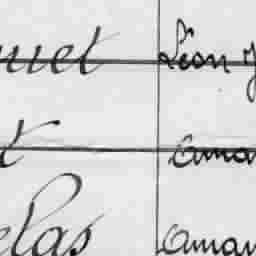 uet Léon J
t Aman
elas Aman